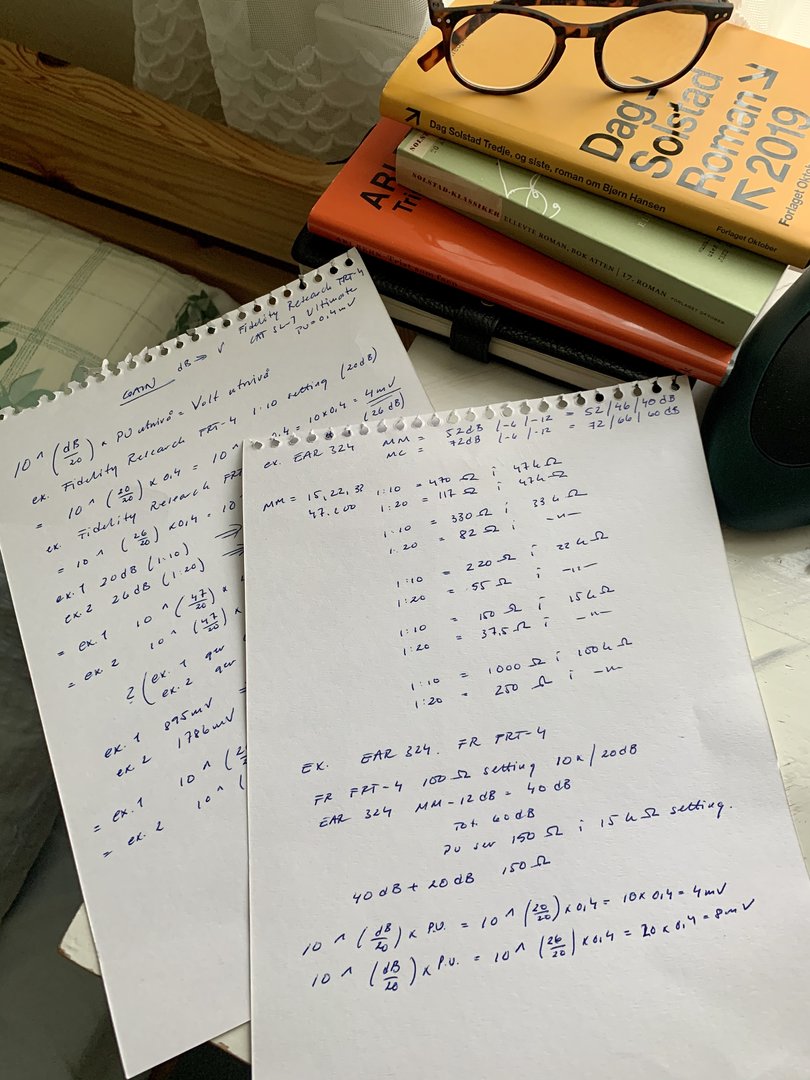 Dag
Solstad
Roman
2019
Forlaget Oktober
Dag Solstad Tredje, og siste, roman om Bjørn Hansen
Forlaget Oktober
SOLSTAD-KLASSIKER ELLEVTE ROMAN, BOK ATTEN | 17. ROMAN FORLAGET OKTOBER
GAIN dB => V Fidelity Research FRT-4
CAT SL-7 Ultimate
PU = 0,4 mV
10 ^ (dB/20) × PU utnivå = Volt utnivå
ex. Fidelity Research FRT-4 1:10 setting (20dB)
= 10 ^ (20/20) × 0,4 = 10 × 0,4 = 4mV
ex. Fidelity Research FRT (26dB)
= 10 ^ (26/20) × 0,4 = 10
ex. 1 20dB (1:10) =>
ex. 2 26dB (1:20) =>
= ex. 1 10 ^ (47/20) ×
= ex. 2 10 ^ (47/20) ×
? ( ex. 1 ger
ex. 2 ger
ex. 1 895mV =
ex. 2 1786mV
= ex. 1 10 ^ (2
= ex. 2 10 ^ (
ex. EAR 324 MM = 52dB /-6 /-12 = 52/46/40dB
MC = 72dB /-6 /-12 = 72/66/60dB
MM = 15, 22, 33
47, 100
1:10 = 470 Ω i 47kΩ
1:20 = 117 Ω i 47kΩ
1:10 = 330 Ω i 33kΩ
1:20 = 82 Ω i -"-
1:10 = 220 Ω i 22kΩ
1:20 = 55 Ω i -"-
1:10 = 150 Ω i 15kΩ
1:20 = 37,5 Ω i -"-
1:10 = 1000 Ω i 100kΩ
1:20 = 250 Ω i -"-
EX. EAR 324. FR FRT-4
FR FRT-4 100 Ω setting 10x/20dB
EAR 324 MM -12dB = 40dB
Tot. 60dB
PU ser 150 Ω i 15kΩ setting.
40dB + 20dB 150 Ω
10 ^ (dB/20) × P.U. = 10 ^ (20/20) × 0,4 = 10 × 0,4 = 4mV
10 ^ (dB/20) × P.U. = 10 ^ (26/20) × 0,4 = 20 × 0,4 = 8mV